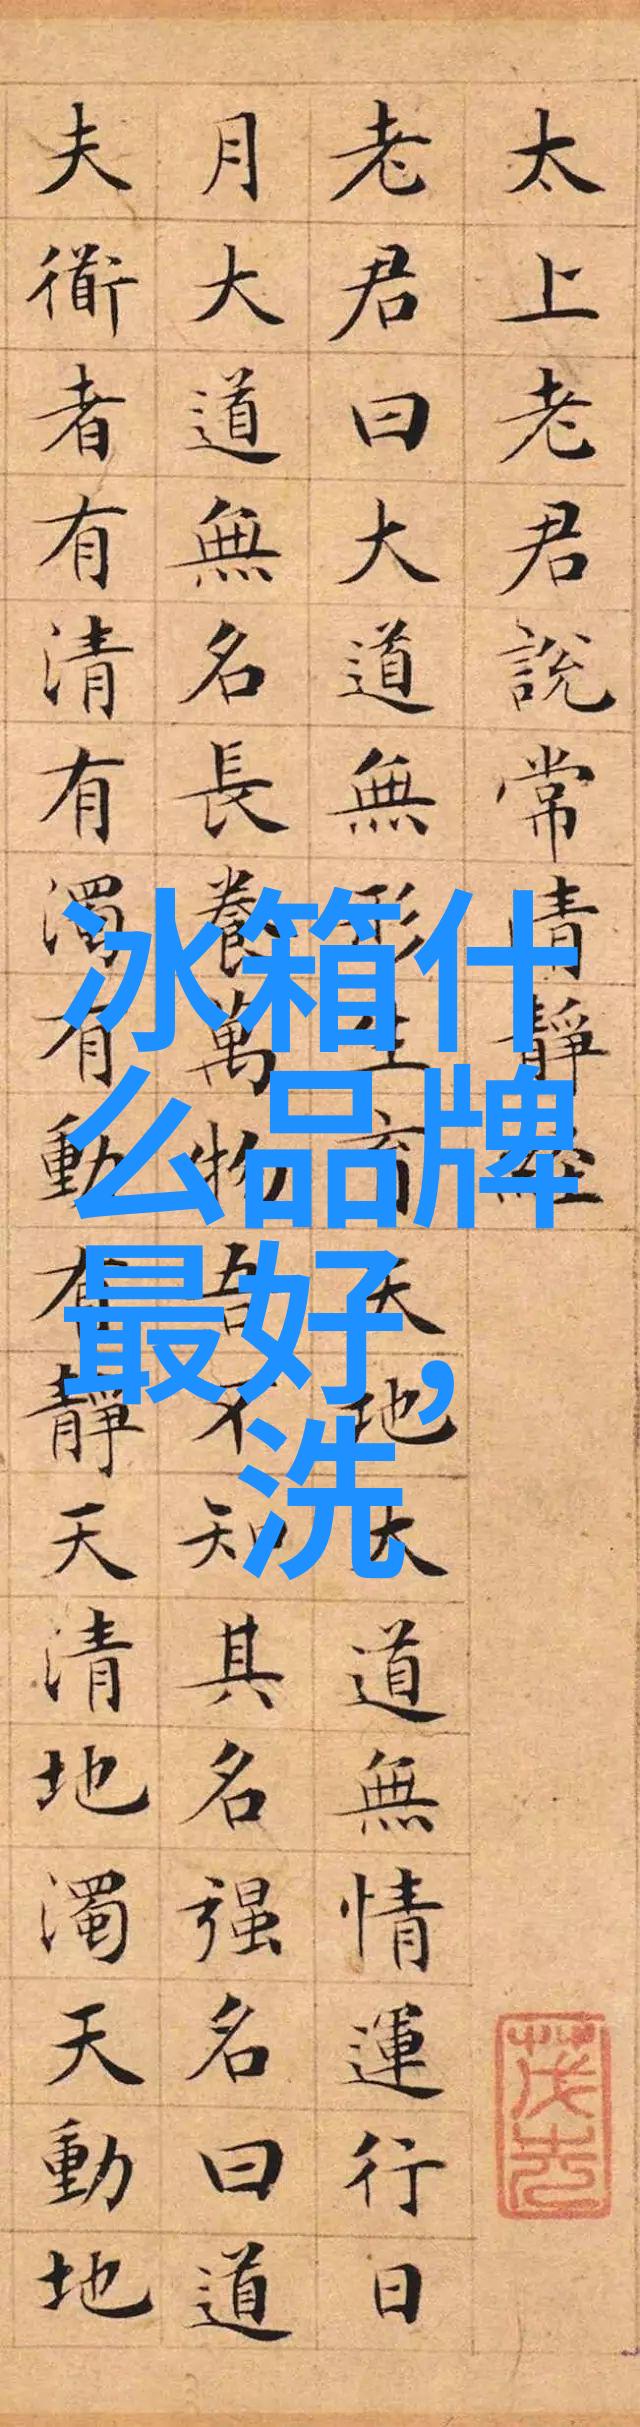 太上老君說常清靜經
老君曰大道無形生育天地大道無情運行日
月大道無名長養萬物吾不知其名强名曰道
夫衜者有清有濁有動有靜天清地濁天動地
冰箱什
么品牌
最好,
洗